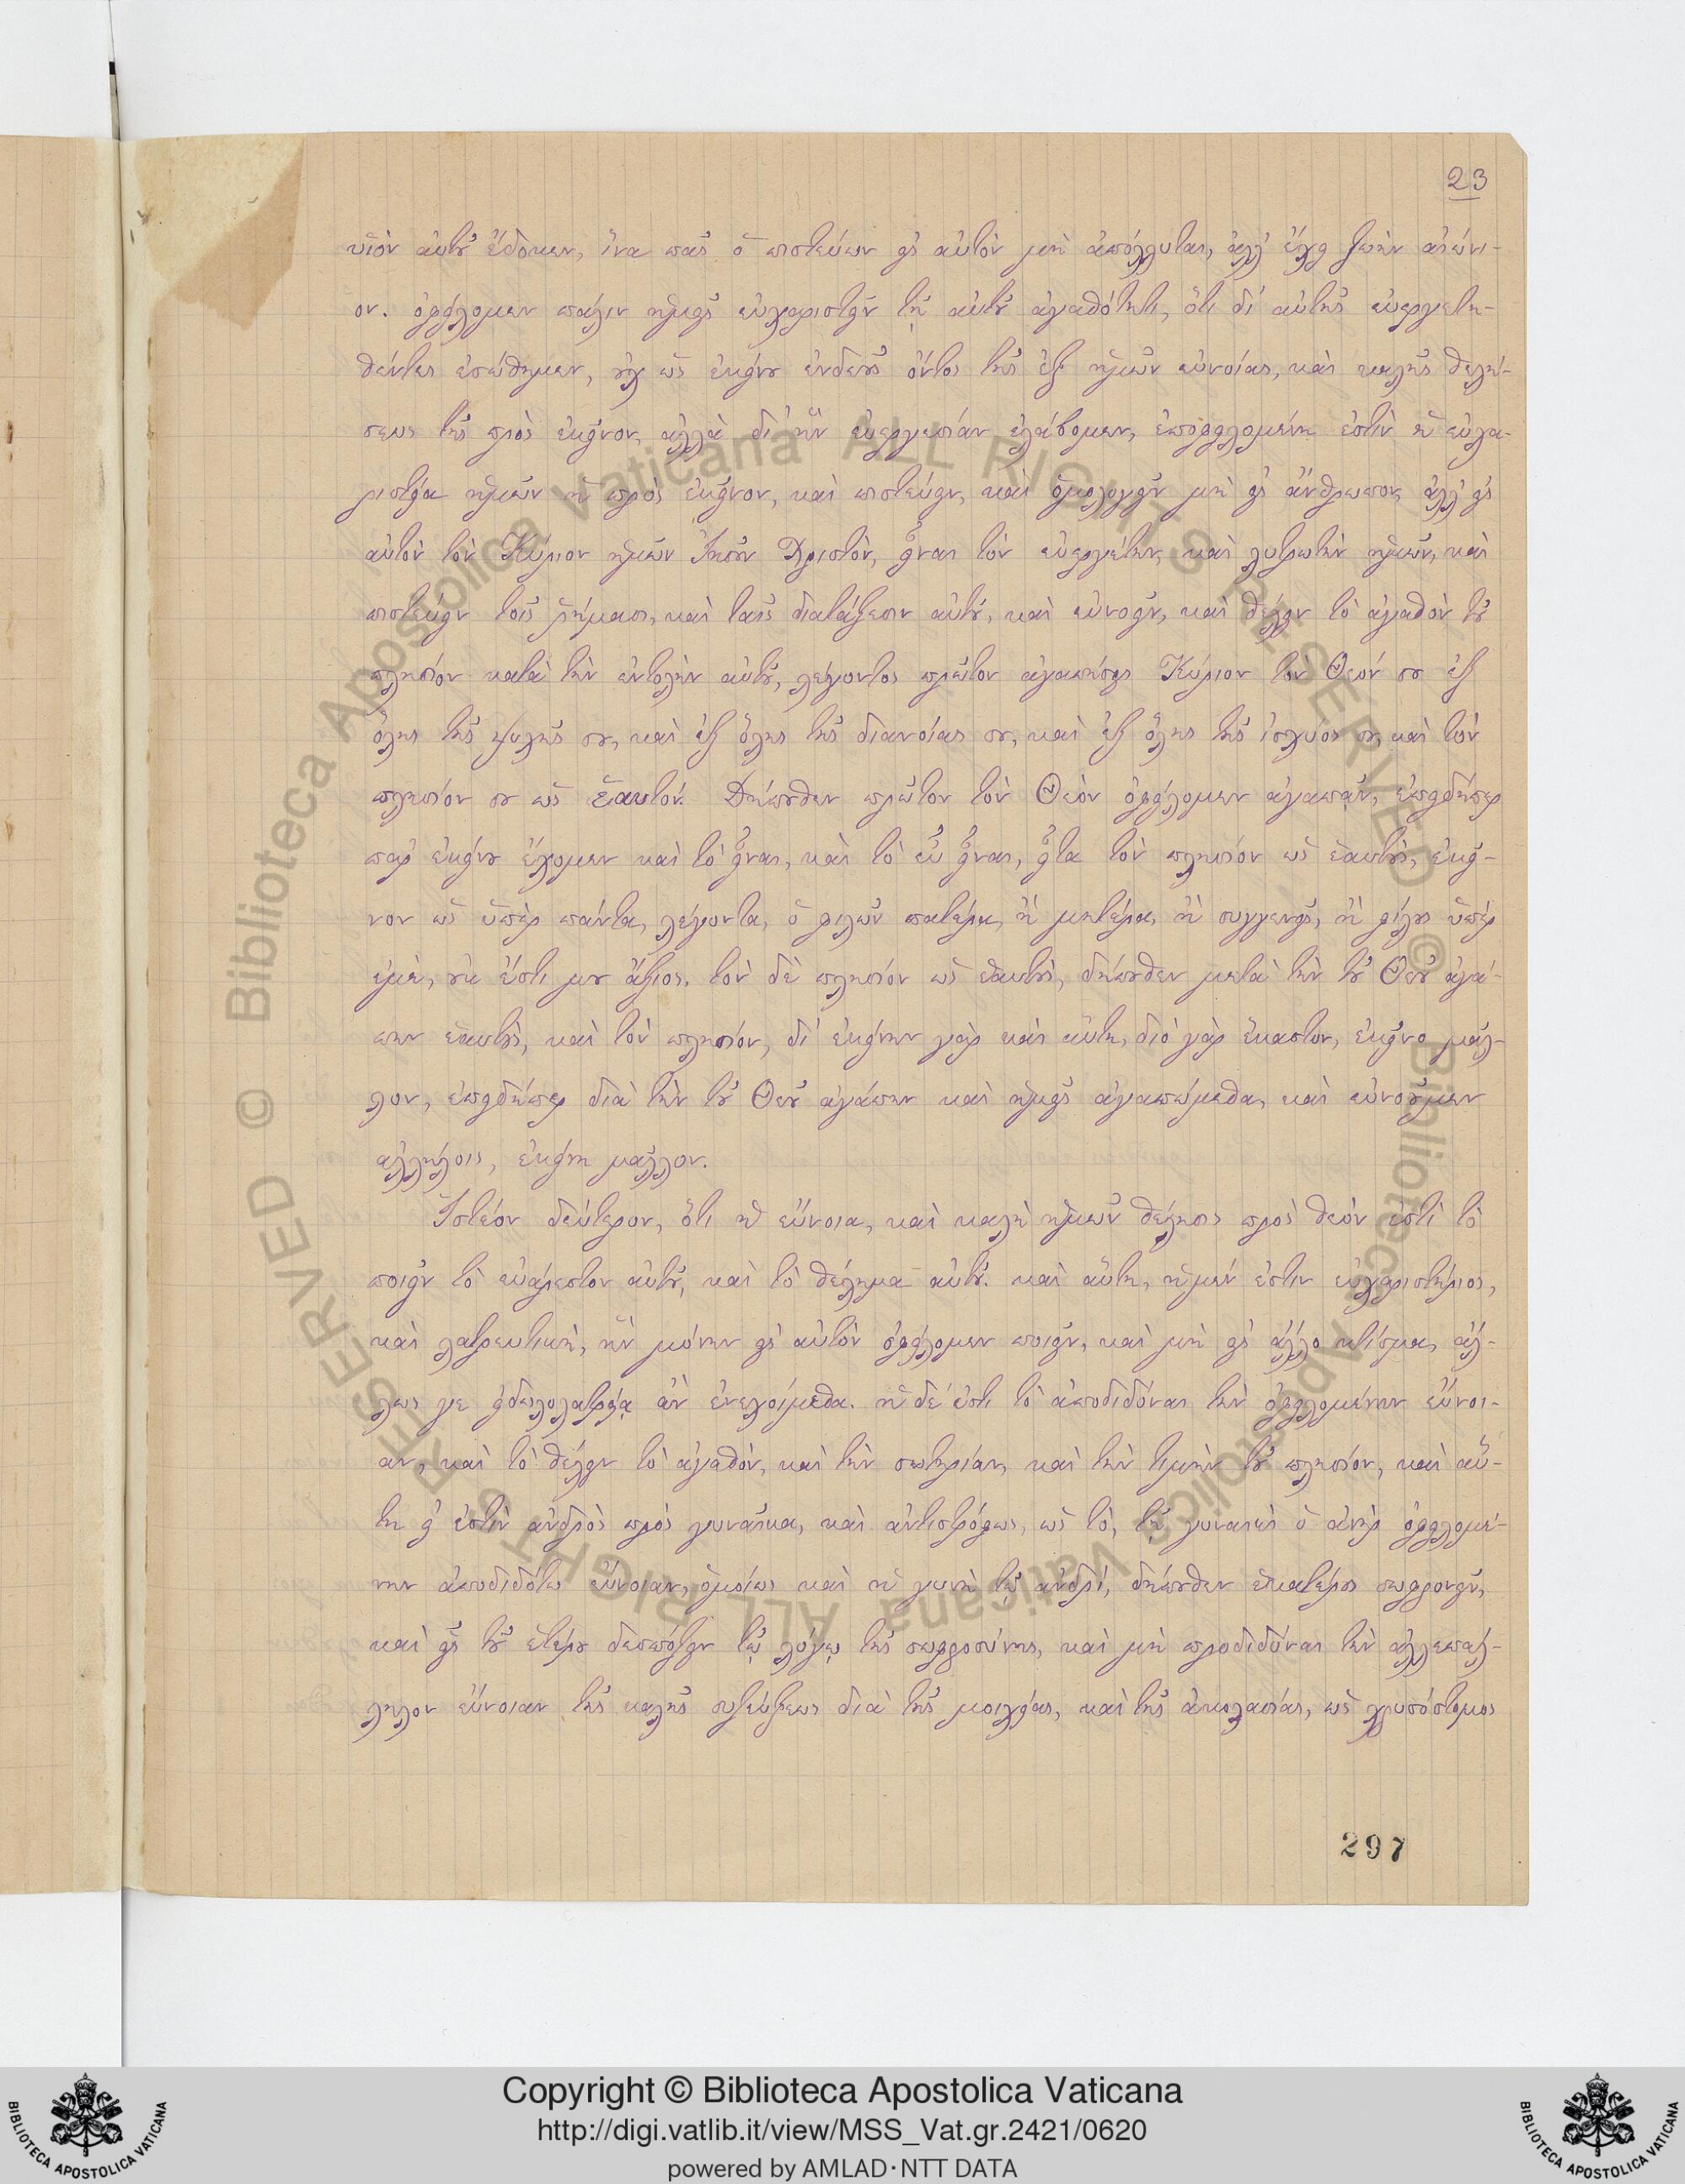 23
υἱὸν αὐτοῦ ἔδοκεν, ἵνα πᾶς ὁ πιστεύων εἰς αὐτὸν μὴ ἀπόλλυται, ἀλλ' ἔχῃ ζωὴν αἰώνι-
ον. ὀφείλομεν πάλιν ἡμεῖς εὐχαριστεῖν τῇ αὐτοῦ ἀγαθότητι, ὅτι δι' αὐτῆς εὐεργετη-
θέντες ἐσώθημεν, οὐχ ὡς ἐκείνου ἐνδεοῦς ὄντος τῆς ἐξ ἡμῶν εὐνοίας, καὶ καλῆς θελή-
σεως τῆς πρὸς ἐκεῖνον, ἀλλὰ δι' ἣν εὐεργεσίαν ἐλάβομεν, ἐποφειλομένη ἐστὶν ἡ εὐχα-
ριστεία ἡμῶν ἡ πρὸς ἐκεῖνον, καὶ πιστεύειν, καὶ ὁμολογεῖν μὴ εἰς ἄνθρωπον, ἀλλ' εἰς
αὐτὸν τὸν Κύριον ἡμῶν Ἰησοῦν Χριστὸν, εἶναι τὸν εὐεργέτην, καὶ λυτρωτὴν ἡμῶν, καὶ
πιστεύειν τοῖς ῥήμασι, καὶ ταῖς διατάξεσιν αὐτοῦ, καὶ εὐνοεῖν, καὶ θέλειν τὸ ἀγαθὸν τοῦ
πλησίον κατὰ τὴν ἐντολὴν αὐτοῦ, λέγοντος πρῶτον ἀγαπήσεις Κύριον τὸν Θεόν σου ἐξ
ὅλης τῆς ψυχῆς σου, καὶ ἐξ ὅλης τῆς διανοίας σου, καὶ ἐξ ὅλης τῆς ἰσχύος σου, καὶ τὸν
πλησίον σου ὡς ἑαυτόν. Δήπουθεν πρῶτον τὸν Θεὸν ὀφείλομεν ἀγαπᾷν, ἐπειδήπερ
παρ' ἐκείνου ἔχομεν καὶ τὸ εἶναι, καὶ τὸ εὖ εἶναι, εἶτα τὸν πλησίον ὡς ἑαυτοὺς, ἐκεῖ-
νον ὡς ὑπὲρ πάντα, λέγοντα, ὁ φιλῶν πατέρα, ἢ μητέρα, ἢ συγγενεῖς, ἢ φίλους ὑπὲρ
ἐμὲ, οὐκ ἔστι μου ἄξιος. τὸν δὲ πλησίον ὡς ἑαυτοὺς, δήπουθεν μετὰ τὴν τοῦ Θεοῦ ἀγά-
πην ἑαυτοὺς, καὶ τὸν πλησίον, δι' ἐκείνην γὰρ καὶ αὕτη, διὸ γὰρ ἕκαστον, ἐκεῖνο μᾶλ-
λον, ἐπειδήπερ διὰ τὴν τοῦ Θεοῦ ἀγάπην καὶ ἡμεῖς ἀγαπώμεθα, καὶ εὐνοοῦμεν
ἀλλήλοις, ἐκείνη μᾶλλον.
Ἰστέον δεύτερον, ὅτι ἡ εὔνοια, καὶ καλὴ ἡμῶν θέλησις πρὸς θεόν ἐστὶ τὸ
ποιεῖν τὸ εὐάρεστον αὐτοῦ, καὶ τὸ θέλημα αὐτοῦ. καὶ αὕτη, ἡ μέν ἐστιν εὐχαριστήριος,
καὶ λατρευτικὴ, ἣν μόνην εἰς αὐτὸν ὀφείλομεν ποιεῖν, καὶ μὴ εἰς ἄλλο κτίσμα, ἄλ-
λως γε εἰδωλολατρείᾳ ἂν ἐνεχοίμεθα. ἡ δέ ἐστι τὸ ἀποδιδόναι τὴν ὀφειλομένην εὔνοι-
αν, καὶ τὸ θέλειν τὸ ἀγαθὸν, καὶ τὴν σωτηρίαν, καὶ τὴν τιμὴν τοῦ πλησίον, καὶ αὕ-
τη εἰ ἐστὶν ἀνδρὸς πρὸς γυναῖκα, καὶ ἀντιστρόφως, ὡς τὸ, τῇ γυναικὶ ὁ ἀνὴρ ὀφειλομέ-
νην ἀποδιδότω εὔνοιαν, ὁμοίως καὶ ἡ γυνὴ τῷ ἀνδρί, δήπουθεν ἑκατέρους σωφρονεῖν,
καὶ εἷς τοῦ ἑτέρου δεσπόζειν τῷ λόγῳ τῆς σωφροσύνης, καὶ μὴ προδιδόναι τὴν ἀλλεπάλ-
ληλον εὔνοιαν τῆς καλῆς συζεύξεως διὰ τῆς μοιχείας, καὶ τῆς ἀκολασίας, ὡς χρυσόστομος
297
Copyright © Biblioteca Apostolica Vaticana
http://digi.vatlib.it/view/MSS_Vat.gr.2421/0620
powered by AMLAD·NTT DATA